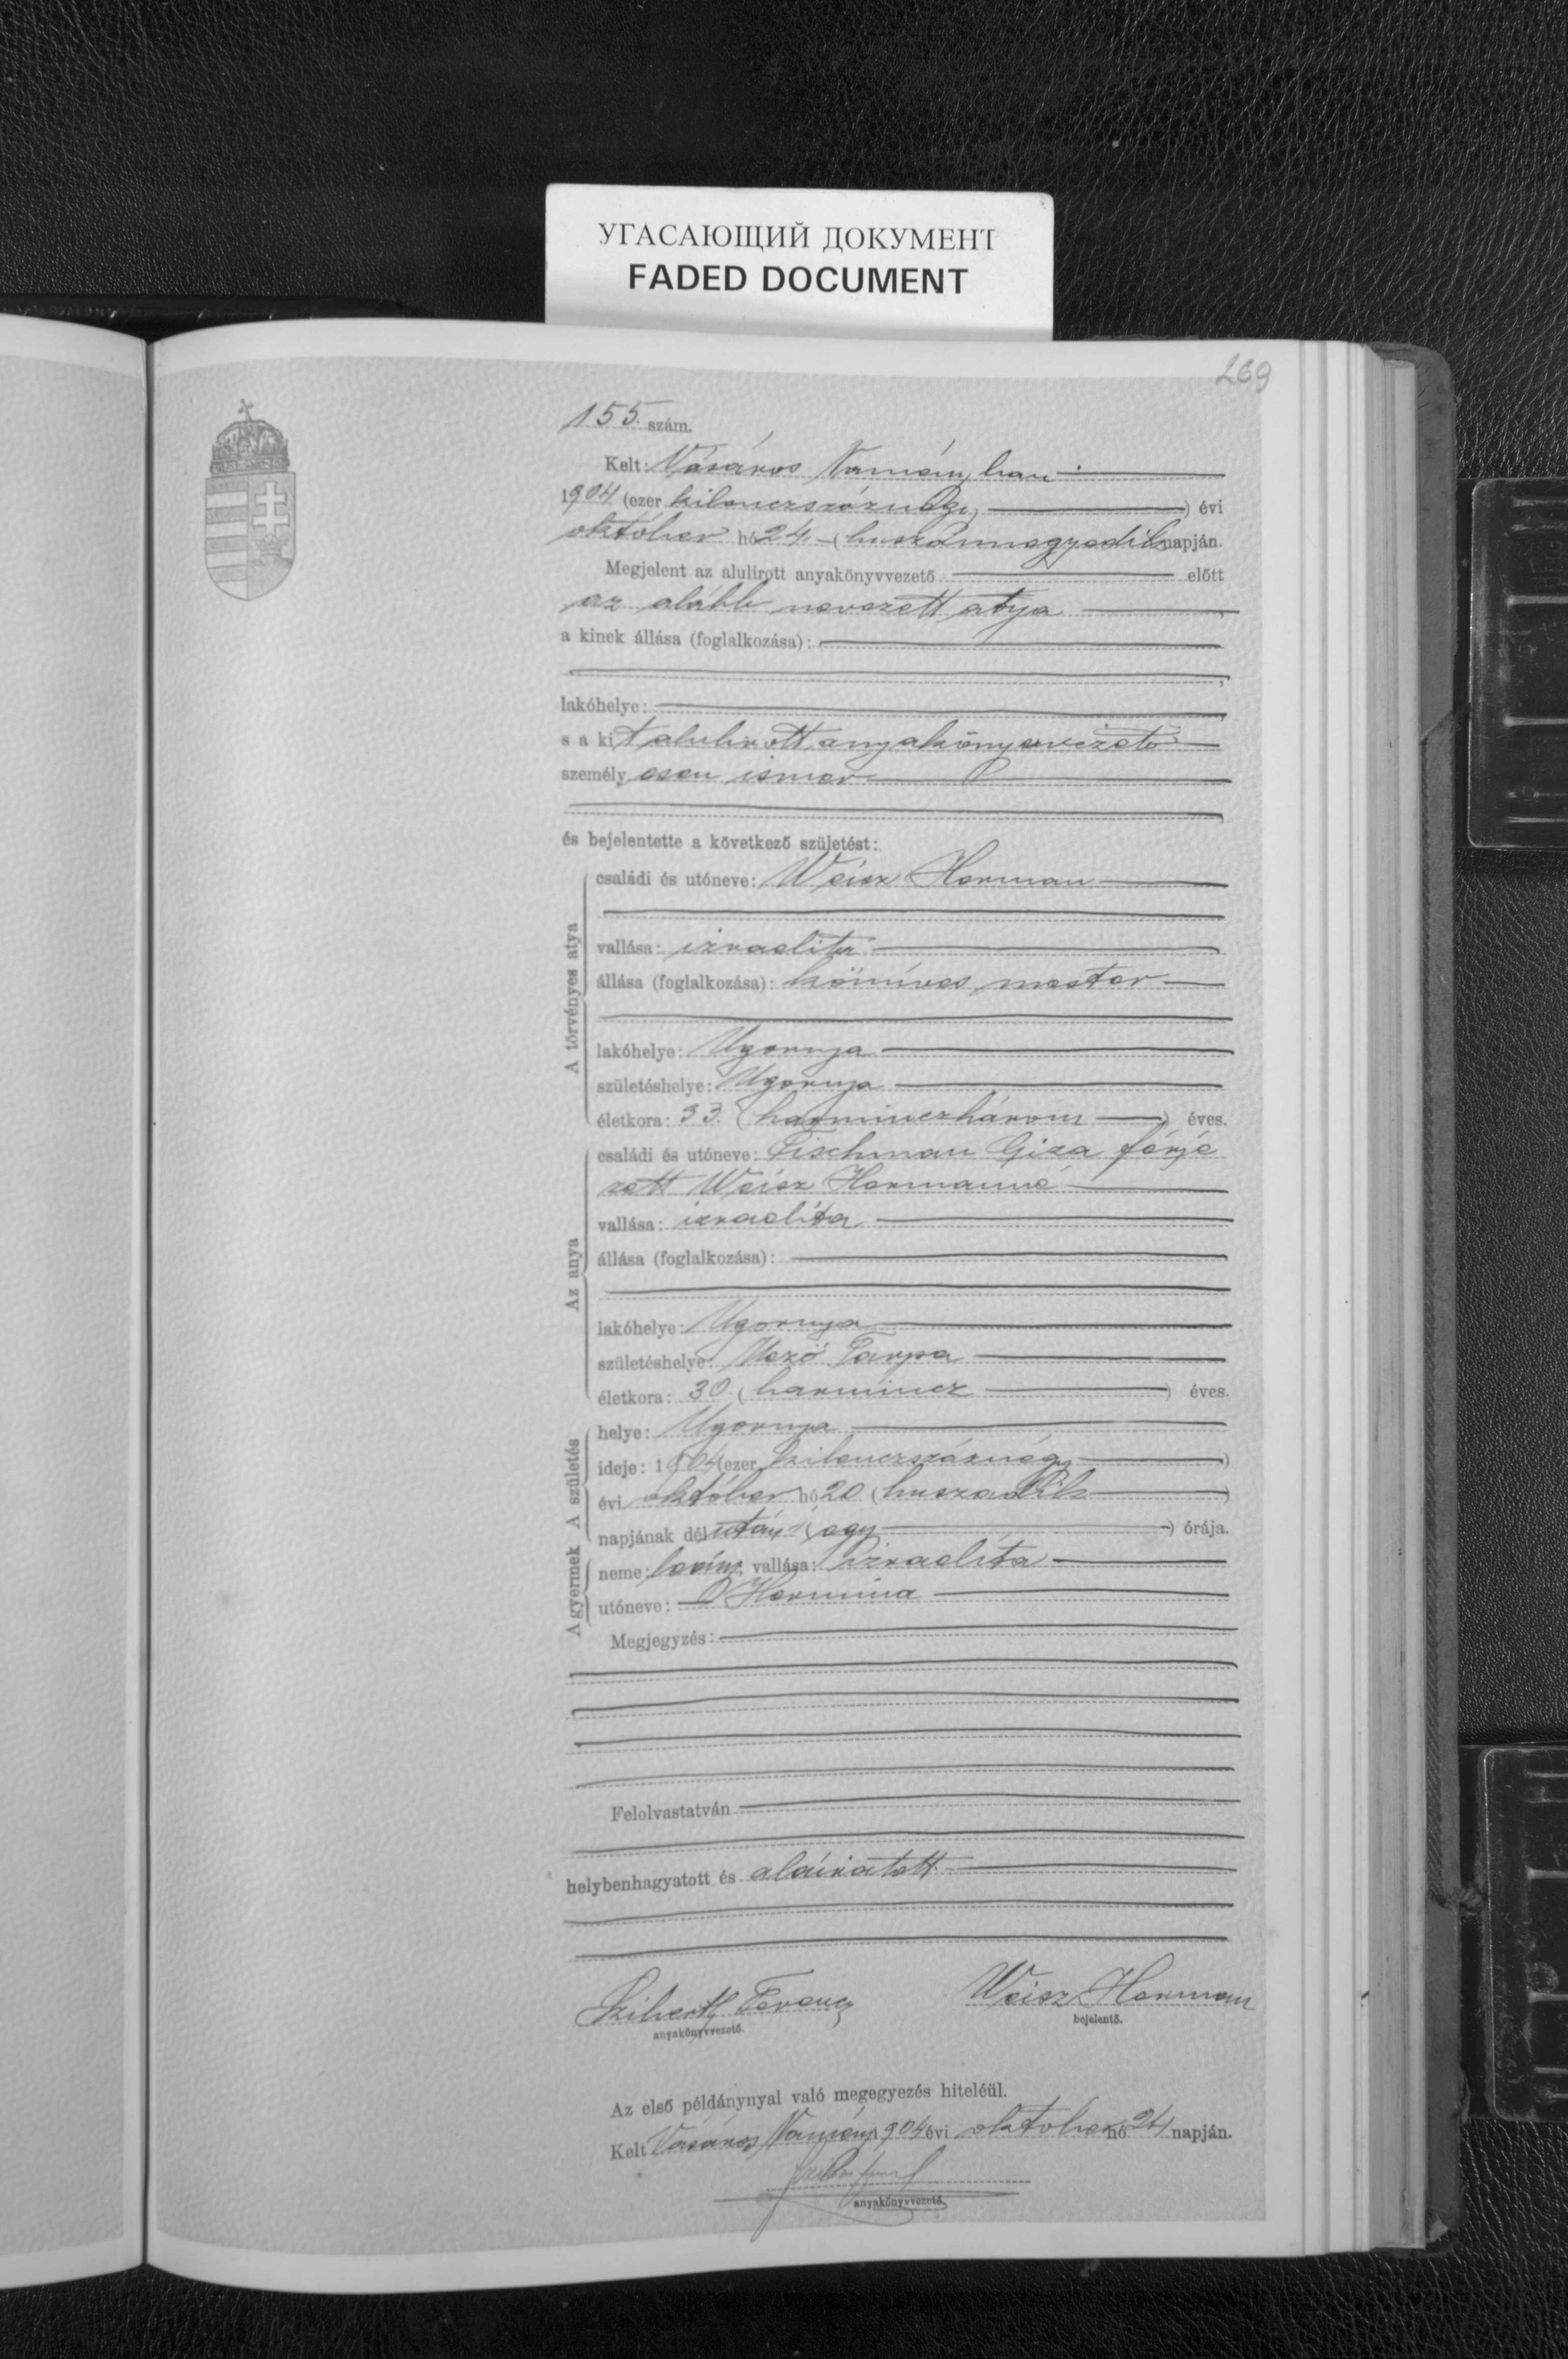 УГАСАЮЩИЙ ДОКУМЕНТ
FADED DOCUMENT
269
155. szám.
Kelt: Vásáros Naményban
1904. (ezer kilenczszáznégy) évi
október hó 24 (huszonnegyedik) napján.
Megjelent az alulirott anyakönyvvezető előtt
az alább nevezett atya,
a kinek állása (foglalkozása):
lakóhelye:
s a kit alulirott anyakönyvvezető
személyesen ismer
és bejelentette a következő születést:
A törvényes atya
családi és utóneve: Weisz Herman
vallása: izraelita
állása (foglalkozása): kőmíves mester
lakóhelye: Ugornya
születéshelye: Ugornya
életkora: 33. (harminczhárom) éves.
Az anya
családi és utóneve: Fischman Giza férje
zett Weisz Hermanné
vallása: izraelita
állása (foglalkozása):
lakóhelye: Ugornya
születéshelye: Mező Tarpa
életkora: 30. (harmincz) éves.
A születés
helye: Ugornya
ideje: 1904 (ezer kilenczszáznégy)
évi október hó 20 (huszadik)
napjának délután 1 (egy) órája.
A gyermek
neme: leány; vallása: izraelita
utóneve: Hermina
Megjegyzés:
Felolvastatván
helybenhagyatott és aláiratott.
Ferencz Weisz Herman
anyakönyvvezető. bejelentő.
Az első példánynyal való megegyezés hiteléül.
Kelt Vásáros Namény 1904 évi október hó 24 napján.
anyakönyvvezető.